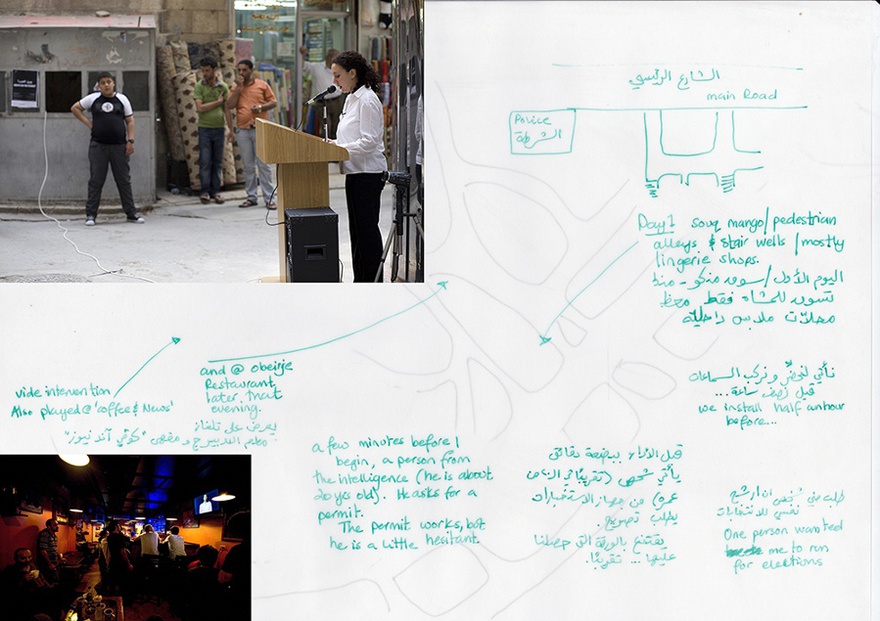 الشارع الرئيسي
main Road
Police
الشرطة
Day 1 souq mango/pedestrian
alleys & stair wells /mostly
lingerie shops.
اليوم الأول/سوق منكو -
تسوق للمشاه فقط
محلات ملابس داخلية
نأتي لنحضّر و نركب السماعات
قبل نصف ساعة...
we install half an hour
before...
vide intervention
Also played @ 'coffee & News'
and @ obeirje
Restaurant,
later that
evening.
يعرض على تلفاز
و مقهى "كوفي آند نيوز"
a few minutes before I
begin, a person from
the intelligence (he is about
20 yrs old). He asks for a
permit.
The permit works, but
he is a little hesitant.
قبل الأداء ببضعة دقائق
يأتي شخص (تقريبًا في الـ٢٠ من
عمره) من جهاز الاستخبارات
يطلب تصريح.
يقتنع بالورقة التي حصلنا
عليها... تقريبًا.
طلب مني شخص أن أرشح
نفسي للانتخابات
One person wanted
me to run
for elections